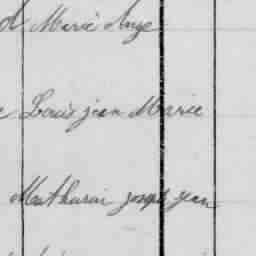 Marie Ange
Louis jean Marie
Mathurin joseph jean